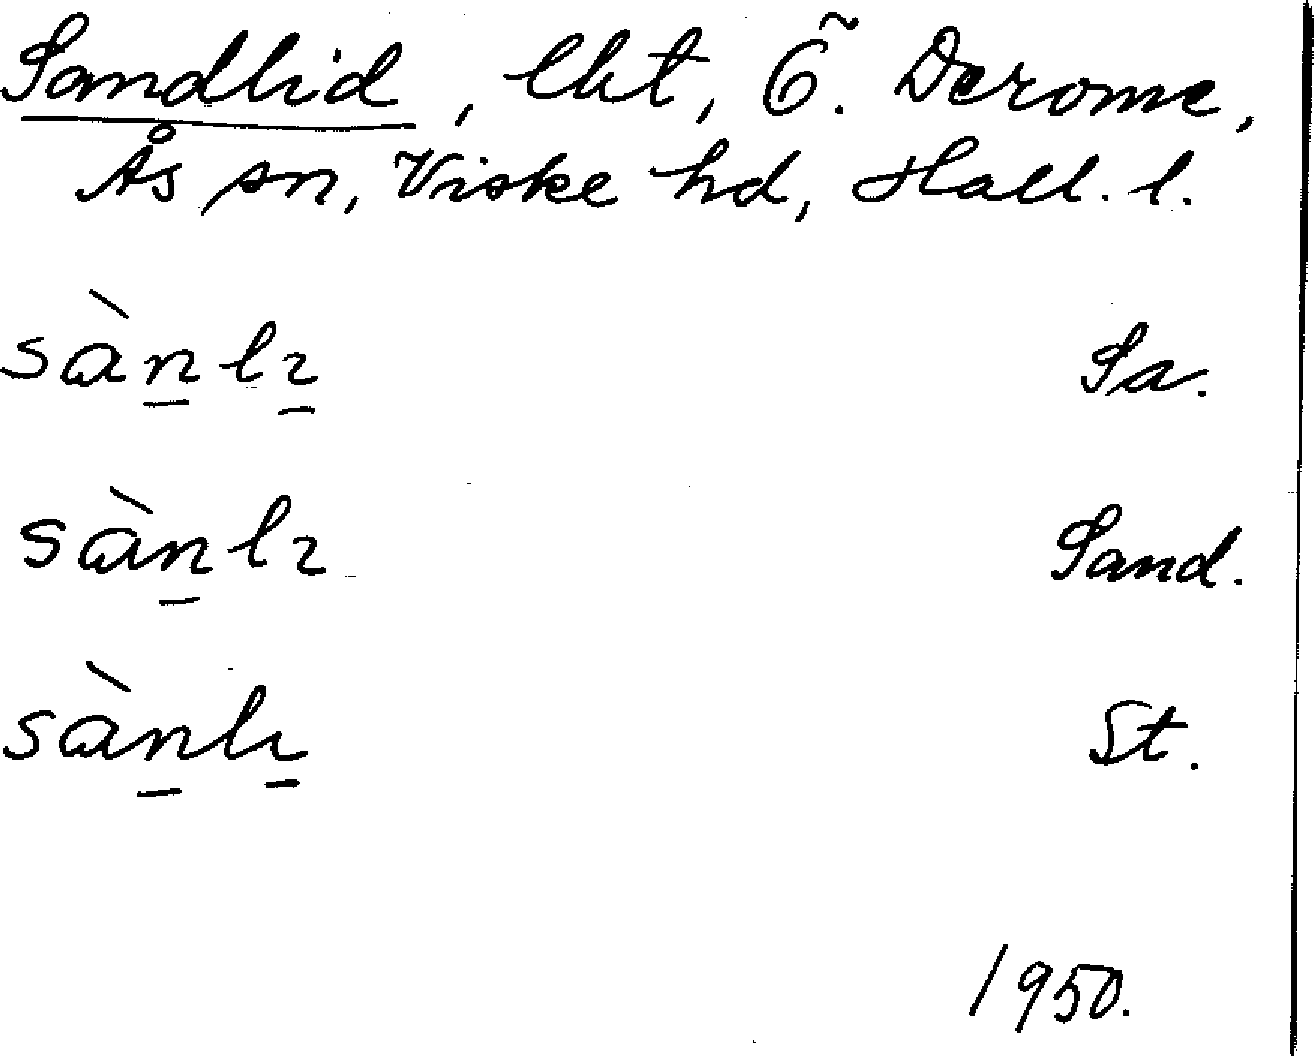 Sandlid, lht, Ö. Derome,
Ås sn, Viske hd, Hall. l.
sànlɩ Sa.
sànlɩ Sand.
sànlɩ St.
1950.